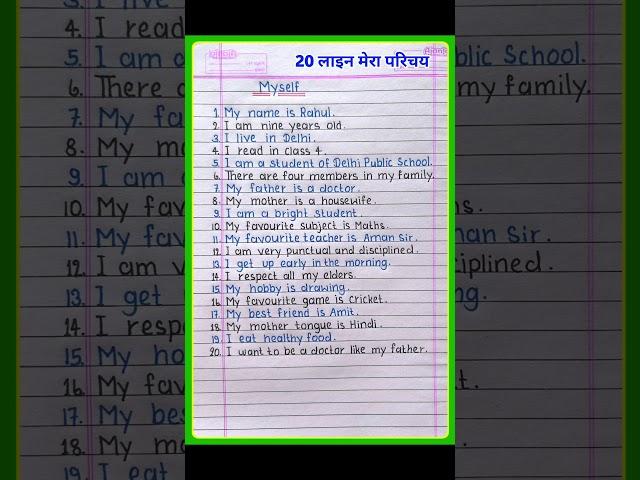 20 लाइन मेरा परिचय
Myself
1. My name is Rahul.
2. I am nine years old.
3. I live in Delhi.
4. I read in class 4.
5. I am a student of Delhi Public School.
6. There are four members in my family.
7. My father is a doctor.
8. My mother is a housewife.
9. I am a bright student.
10. My favourite subject is Maths.
11. My favourite teacher is Aman Sir.
12. I am very punctual and disciplined.
13. I get up early in the morning.
14. I respect all my elders.
15. My hobby is drawing.
16. My favourite game is Cricket.
17. My best friend is Amit.
18. My mother tongue is Hindi.
19. I eat healthy food.
20. I want to be a doctor like my father.